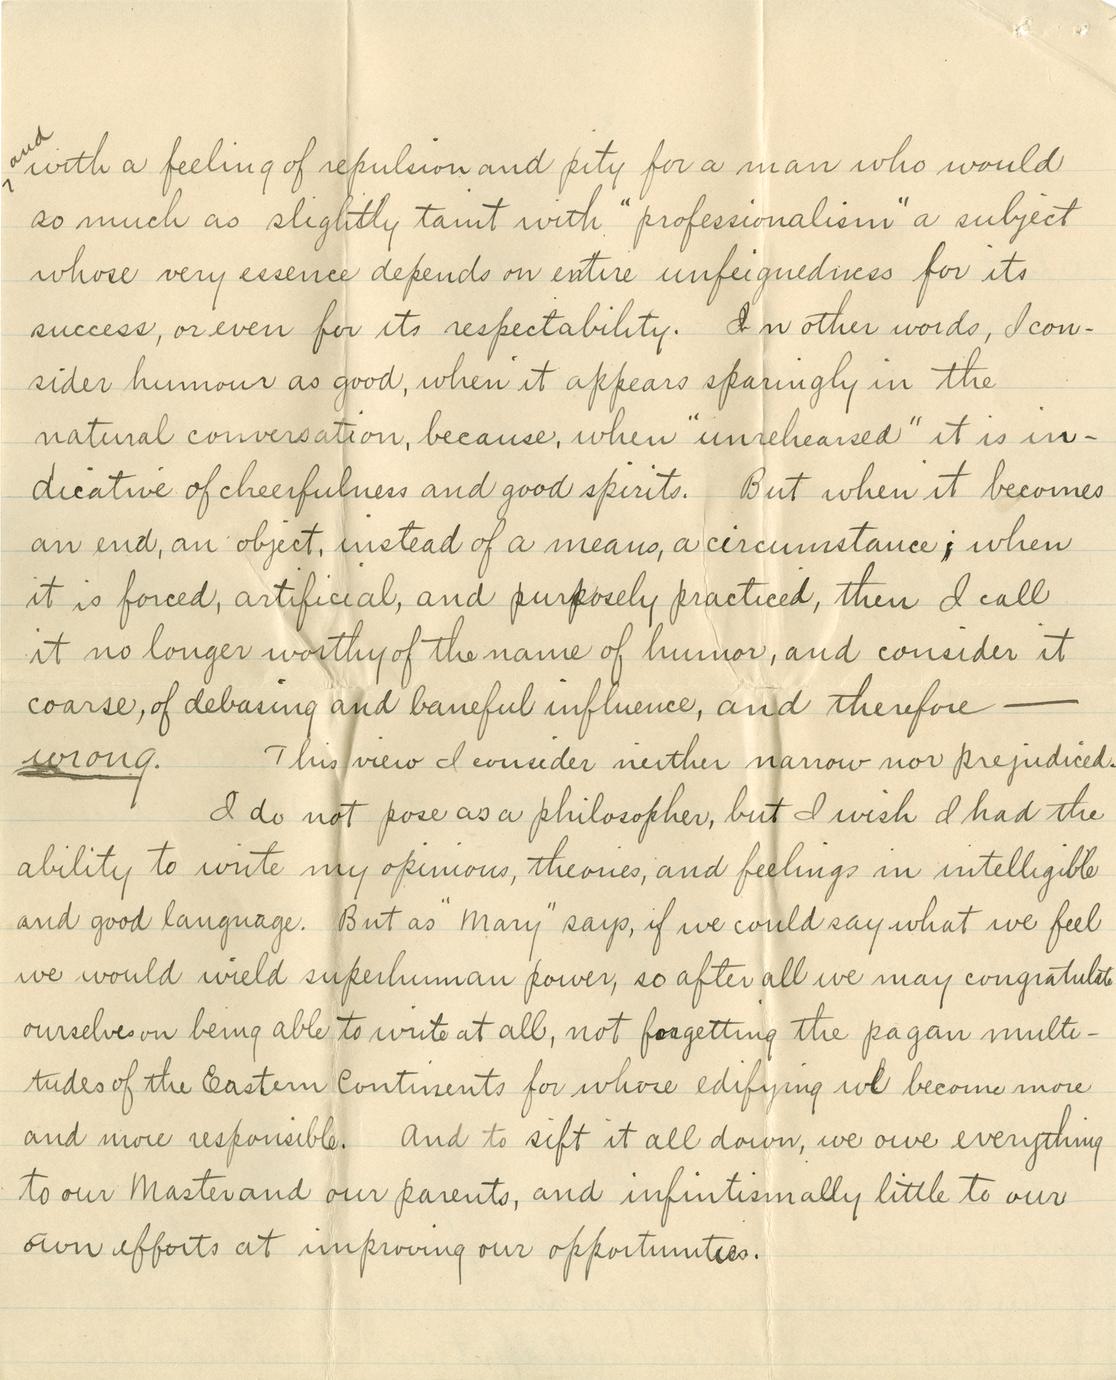 and with a feeling of repulsion and pity for a man who would
so much as slightly taint with "professionalism" a subject
whose very essence depends on entire unfeignedness for its
success, or even for its respectability. In other words, I con-
sider humour as good, when it appears sparingly in the
natural conversation, because, when "unrehearsed" it is in-
dicative of cheerfulness and good spirits. But when it becomes
an end, an object, instead of a means, a circumstance; when
it is forced, artificial, and purposely practiced, then I call
it no longer worthy of the name of humor, and consider it
coarse, of debasing and baneful influence, and therefore —
wrong. This view I consider neither narrow nor prejudiced.
I do not pose as a philosopher, but I wish I had the
ability to write my opinions, theories, and feelings in intelligible
and good language. But as "Mary" says, if we could say what we feel
we would wield superhuman power, so after all we may congratulate
ourselves on being able to write at all, not forgetting the pagan multi-
tudes of the Eastern Continents for whose edifying we become more
and more responsible. And to sift it all down, we owe everything
to our Master and our parents, and infintismally little to our
own efforts at improving our opportunities.